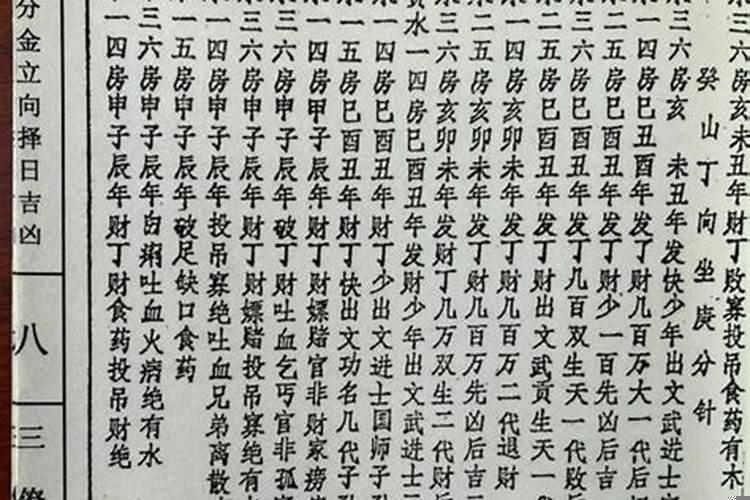 三六房亥未丑年财丁败寡投吊药有木
癸山丁向坐庚分针
三六房亥 未丑年发快少年出文武进士
一四房巳丑酉年发丁财几百万大一代后
二五房巳酉丑年发丁财少一百先凶后吉
三六房巳酉丑年发丁几百双生天一代败后
二五房巳酉丑年发丁财出文武贡生天一
一四房亥卯未年发丁财几百万二代退财
二五房亥卯未年发丁财几百万先凶后吉
三六房亥卯未年发财丁几万双生二代财后
水一四房巳酉丑年发财少年出文武进士
一四房巳酉丑年财丁少出文进士国师子
一五房巳酉丑年财丁快出文功名几代子
一四房甲子辰年财丁财嫖赌官非财家痨
三六房申子辰年破丁财吐血乞丐官非孤
三六房申子辰年财丁财嫖赌投吊寡绝有
一四房申子辰年投吊寡绝吐血兄弟离散
一五房申子辰年破足缺口食药
三六房申子辰年白痢吐血火病绝有水
一四房申子辰年财丁财食药投吊财绝
分金立向择日吉凶
八
三